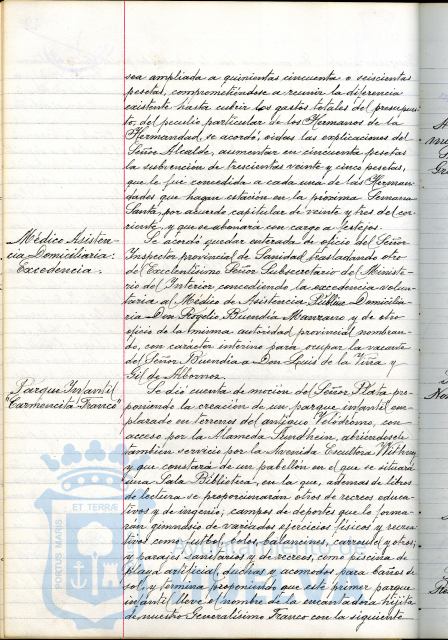 sea ampliada a quinientas cincuenta o seiscientas
pesetas, comprometiéndose a reunir la diferencia
existente hasta cubrir los gastos totales del presupues
to, del peculio particular de los Hermanos de la
Hermandad, se acordó, oídas las explicaciones del
Señor Alcalde, aumentar en cincuenta pesetas
la subvención de trescientas veinte y cinco pesetas,
que le fue concedida a cada una de las Herman
dades que hagan estación en la próxima Semana
Santa, por acuerdo capitular de veinte y tres del co
rriente, y que se abonará con cargo a festejos.
Médico Asisten-
cia Domiciliaria:
Excedencia.
Se acordó quedar enterada de oficio del Señor
Inspector provincial de Sanidad trasladando otro
del Excelentísimo Señor Subsecretario del Ministe
rio del Interior concediendo la excedencia volun
taria al Médico de Asistencia Pública Domicilia
ria Don Rogelio Buendía Manzano y de otro
oficio de la misma autoridad provincial nombran
do, con carácter interino para ocupar la vacante
del Señor Buendía a Don Luis de la Viña y
Gil de Albornoz.
Parque Infantil
"Carmencita Franco"
Se dió cuenta de moción del Señor Plata pro
poniendo la creación de un parque infantil em
plazado en terrenos del antiguo Velódromo, con
acceso por la Alameda Sundheim, abriéndosele
también servicio por la Avenida Escultora Withney
y que constará de un pabellón en el que se situará
una Sala Biblioteca, en la que, además de libros
de lectura se proporcionarán otros de recreos educa
tivos y de ingenio; campos de deportes que lo forma
rán gimnasio de variados ejercicios físicos y recrea
tivos como futbol, columpios, balancines, carrousel y otros;
y parajes sanitarios y de recreos, como piscina de
playa artificial, duchas y acomodos para baños de
sol, y termina proponiendo que este primer parque
infantil lleve el nombre de la encantadora hijita
de nuestro Generalísimo Franco con la siguiente
PORTUS MARIS
ET TERRÆ